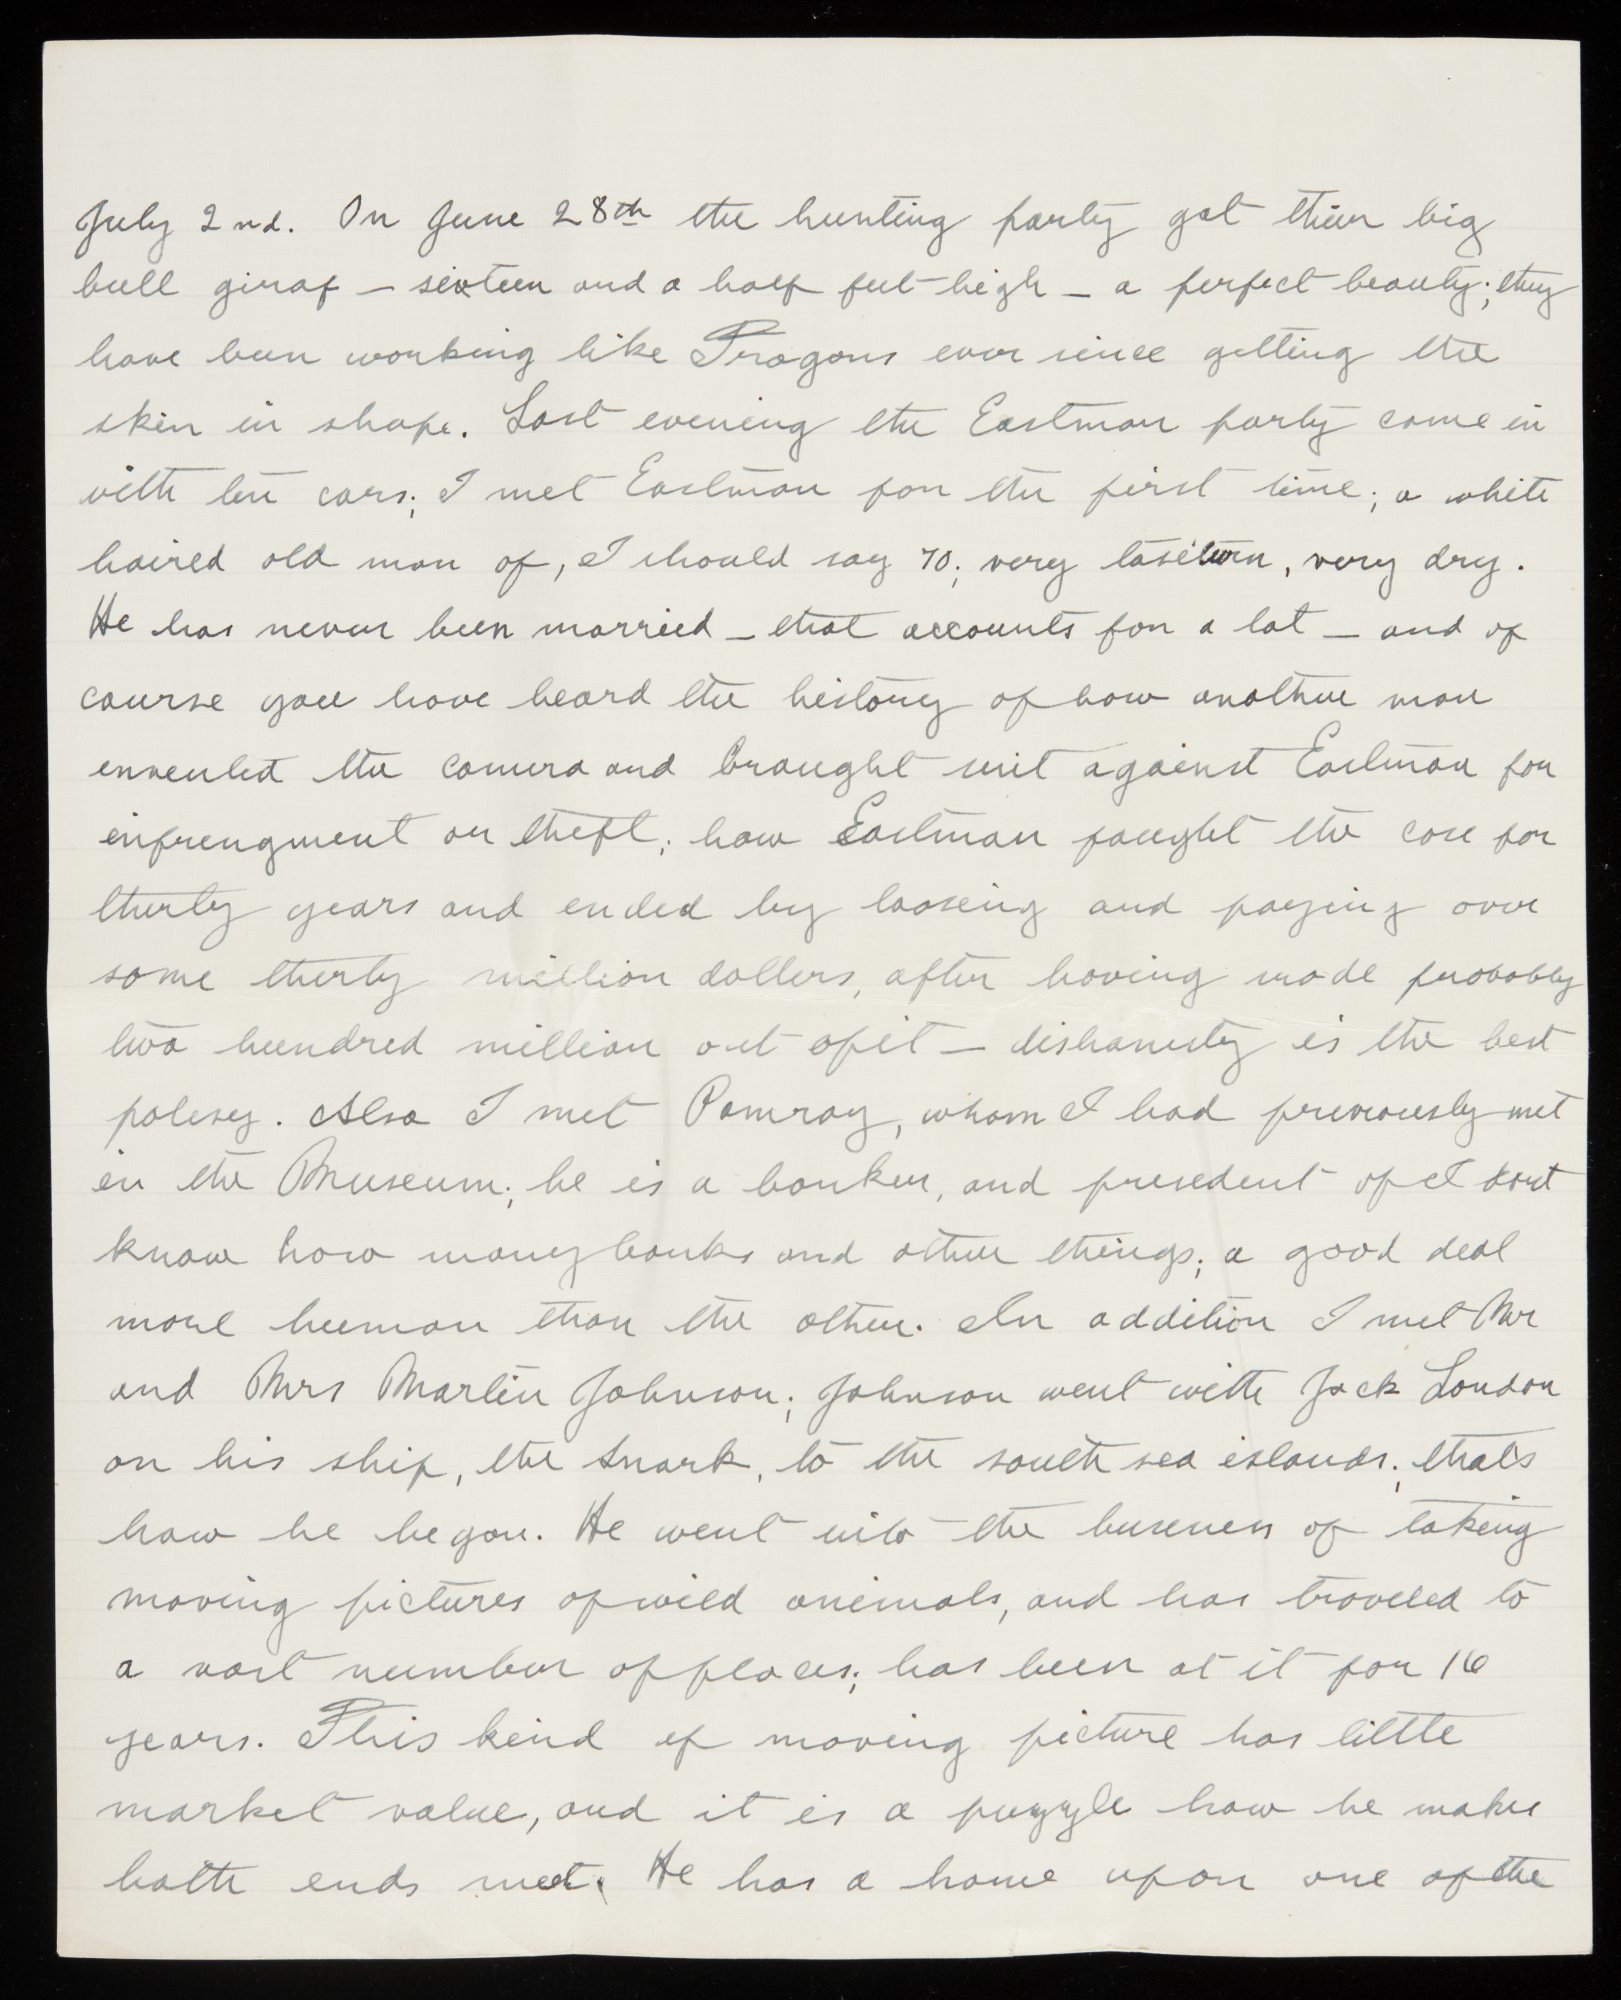 July 2nd. On June 28th the hunting party got their big
bull giraf – sixteen and a half feet high – a perfect beauty; they
have been working like Trogans ever since getting the
skin in shape. Last evening the Eastman party came in
with ten cars; I met Eastman for the first time; a white
haired old man of, I should say 70; very tasiturn, very dry.
He has never been married – that accounts for a lot – and of
course you have heard the history of how another man
envented the camera and braught suit against Eastman for
infrengment or theft; how Eastman faught the case for
thirty years and ended by loosing and paying over
some thirty million dollers, after having made probably
two hundred million out of it – dishonesty is the best
polisy. Also I met Pomroy, whom I had previously met
in the Museum; he is a banker, and president of I dont
know how many banks and other things; a good deal
more human than the other. In addition I met Mr
and Mrs Martin Johnson; Johnson went with Jack London
on his ship, the Snark, to the south sea islands; thats
how he began. He went into the business of taking
moving pictures of wild animals, and has traveled to
a vast number of places; has been at it for 16
years. This kind of moving picture has little
market value, and it is a puzzle how he makes
both ends meet. He has a home upon one of the